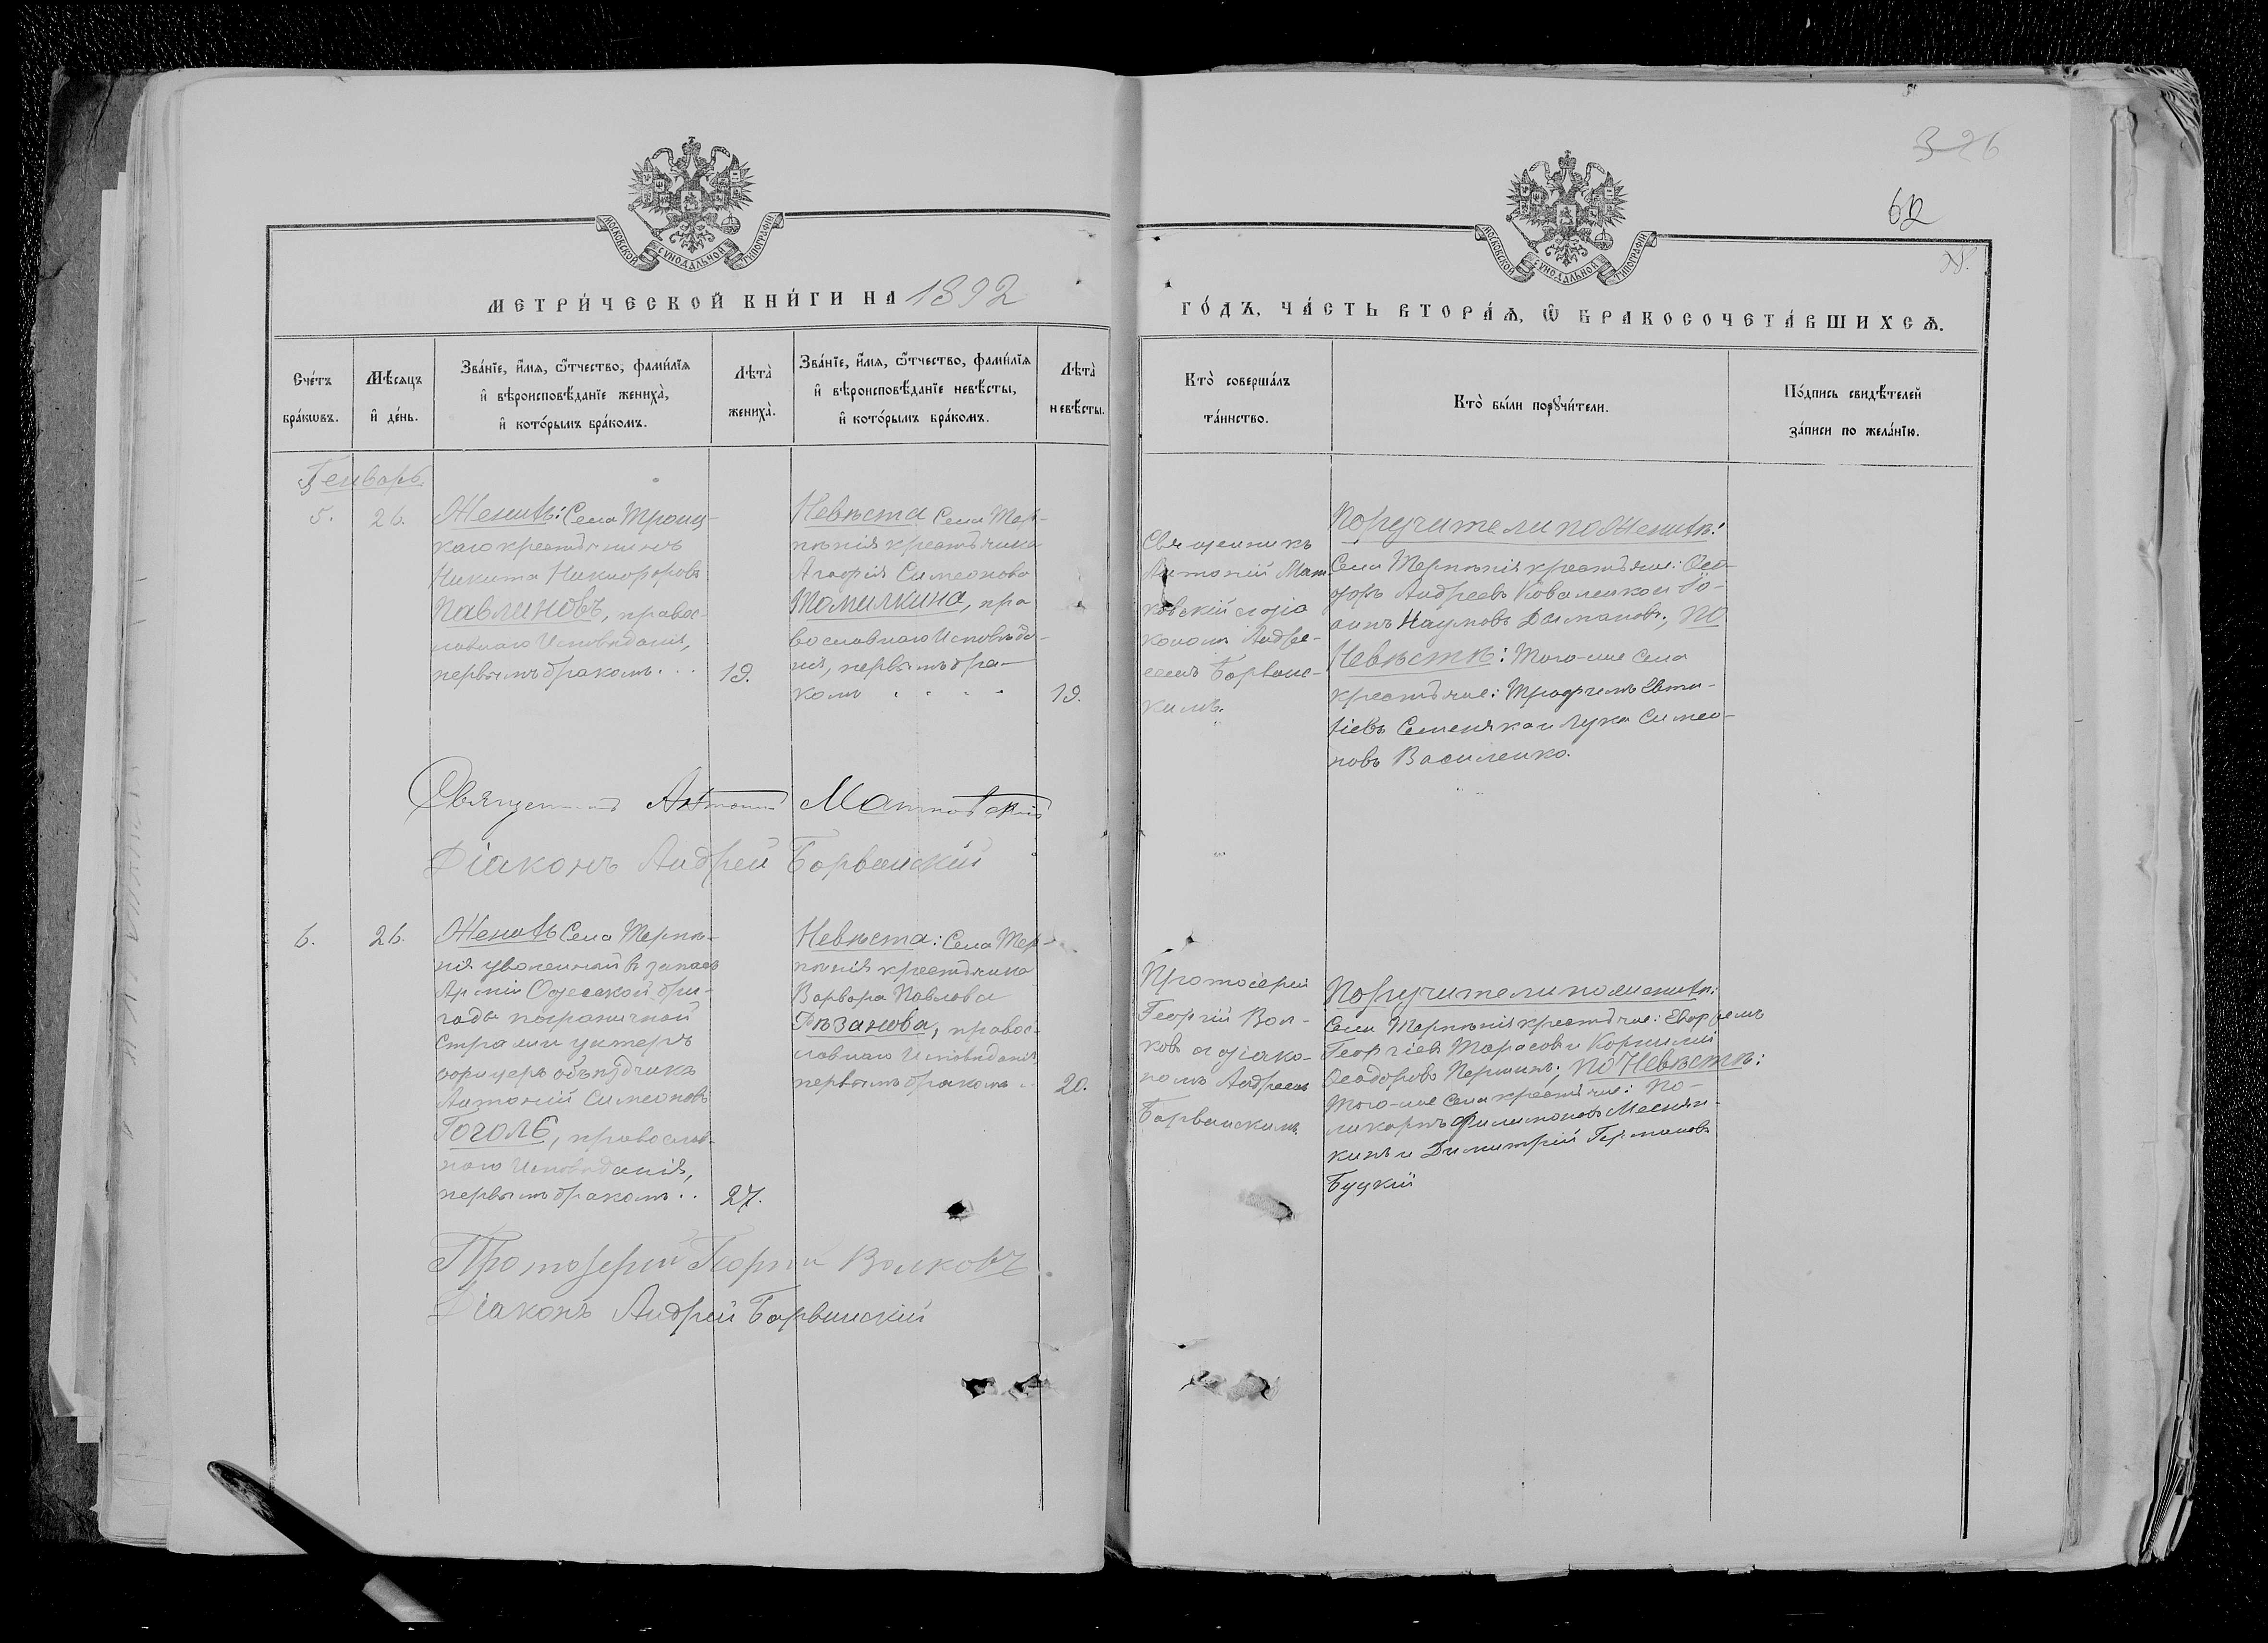 326
62
МОСКОВСКОЙ СѴНОДАЛЬНОЙ ТИПОГРАФІИ
МОСКОВСКОЙ СѴНОДАЛЬНОЙ ТИПОГРАФІИ
МЕТРИ́ЧЕСКОЙ КНИ́ГИ НА 1892
ГО́ДЪ, ЧА́СТЬ ВТОРА́Ѧ, Ѽ БРАКОСОЧЕТА́ВШИХСѦ.
Сче́тъ
бра́кѡвъ.
Мѣ́сяцъ
и҆ де́нь.
Зва́нїе, и҆́мѧ, ѻ҆́тчество, фами́лїѧ
и҆ вѣроисповѣ́данїе жениха̀,
и҆ кото́рымъ бра́комъ.
Лѣта̀
жениха̀.
Зва́нїе, и҆́мѧ, ѻ҆́тчество, фами́лїѧ
и҆ вѣроисповѣ́данїе невѣ́сты,
и҆ кото́рымъ бра́комъ.
Лѣта̀
невѣ́сты.
Кто̀ соверша́лъ
та́инство.
Кто̀ бы́ли порꙋчи́тели.
По́дпись свидѣ́телей
за́писи по жела́нїю.
Генварь
5.
26.
Женихъ: Села Троиц-
каго крестьянинъ
Никита Никифоровъ
Павлиновъ, правос-
лавнаго Исповѣданія,
первымъ бракомъ...
19.
Невѣста Села Тер-
пѣнія крестьянка
Агафія Симеонова
Томилкина, пра
вославнаго Исповѣда-
нія, первымъ бра-
комъ . . . .
19.
Священникъ
Антоній Мат-
ковскій с діа
кономъ Андре-
емъ Борванс-
кимъ.
Поручители по Женихѣ:
Села Терпѣнія крестьяне: Ѳео-
доръ Андреевъ Коваленко и Іо-
аннъ Наумовъ Домановъ; По
Невѣстѣ: Того-же Села
крестьяне: Трофимъ Евти-
хіевъ Семеняка и Лука Симео-
новъ Василенко.
Священникъ Антоній Матковскій
Діаконъ Андрей Борванскій
6.
26.
Женихъ Села Терпѣ-
нія уволенный въ запасъ
Арміи Одесской бри-
гады пограничной
Стражи унтеръ
офицеръ объѣздчикъ
Антоній Симеоновъ
Гоголь, православ-
наго Исповѣданія,
первымъ бракомъ..
27.
Невѣста: Села Тер-
пѣнія крестьянка
Варвара Павлова
Рѣзанова, правос-
лавнаго Исповѣданія,
первымъ бракомъ..
20.
Протоіерей
Георгій Вол-
ковъ с діако-
номъ Андреемъ
Борванскимъ
Поручители по женихѣ:
Села Терпѣнія крестьяне: Евфремъ
Георгіевъ Тарасовъ и Корнилій
Ѳеодоровъ Першинъ; по Невѣстѣ:
Того-же Села крестьяне: По-
ликарпъ Филимоновъ Меснян-
кинъ и Димитрій Германовъ
Буцкій
Протоіерей Георгій Волковъ
Діаконъ Андрей Борванскій